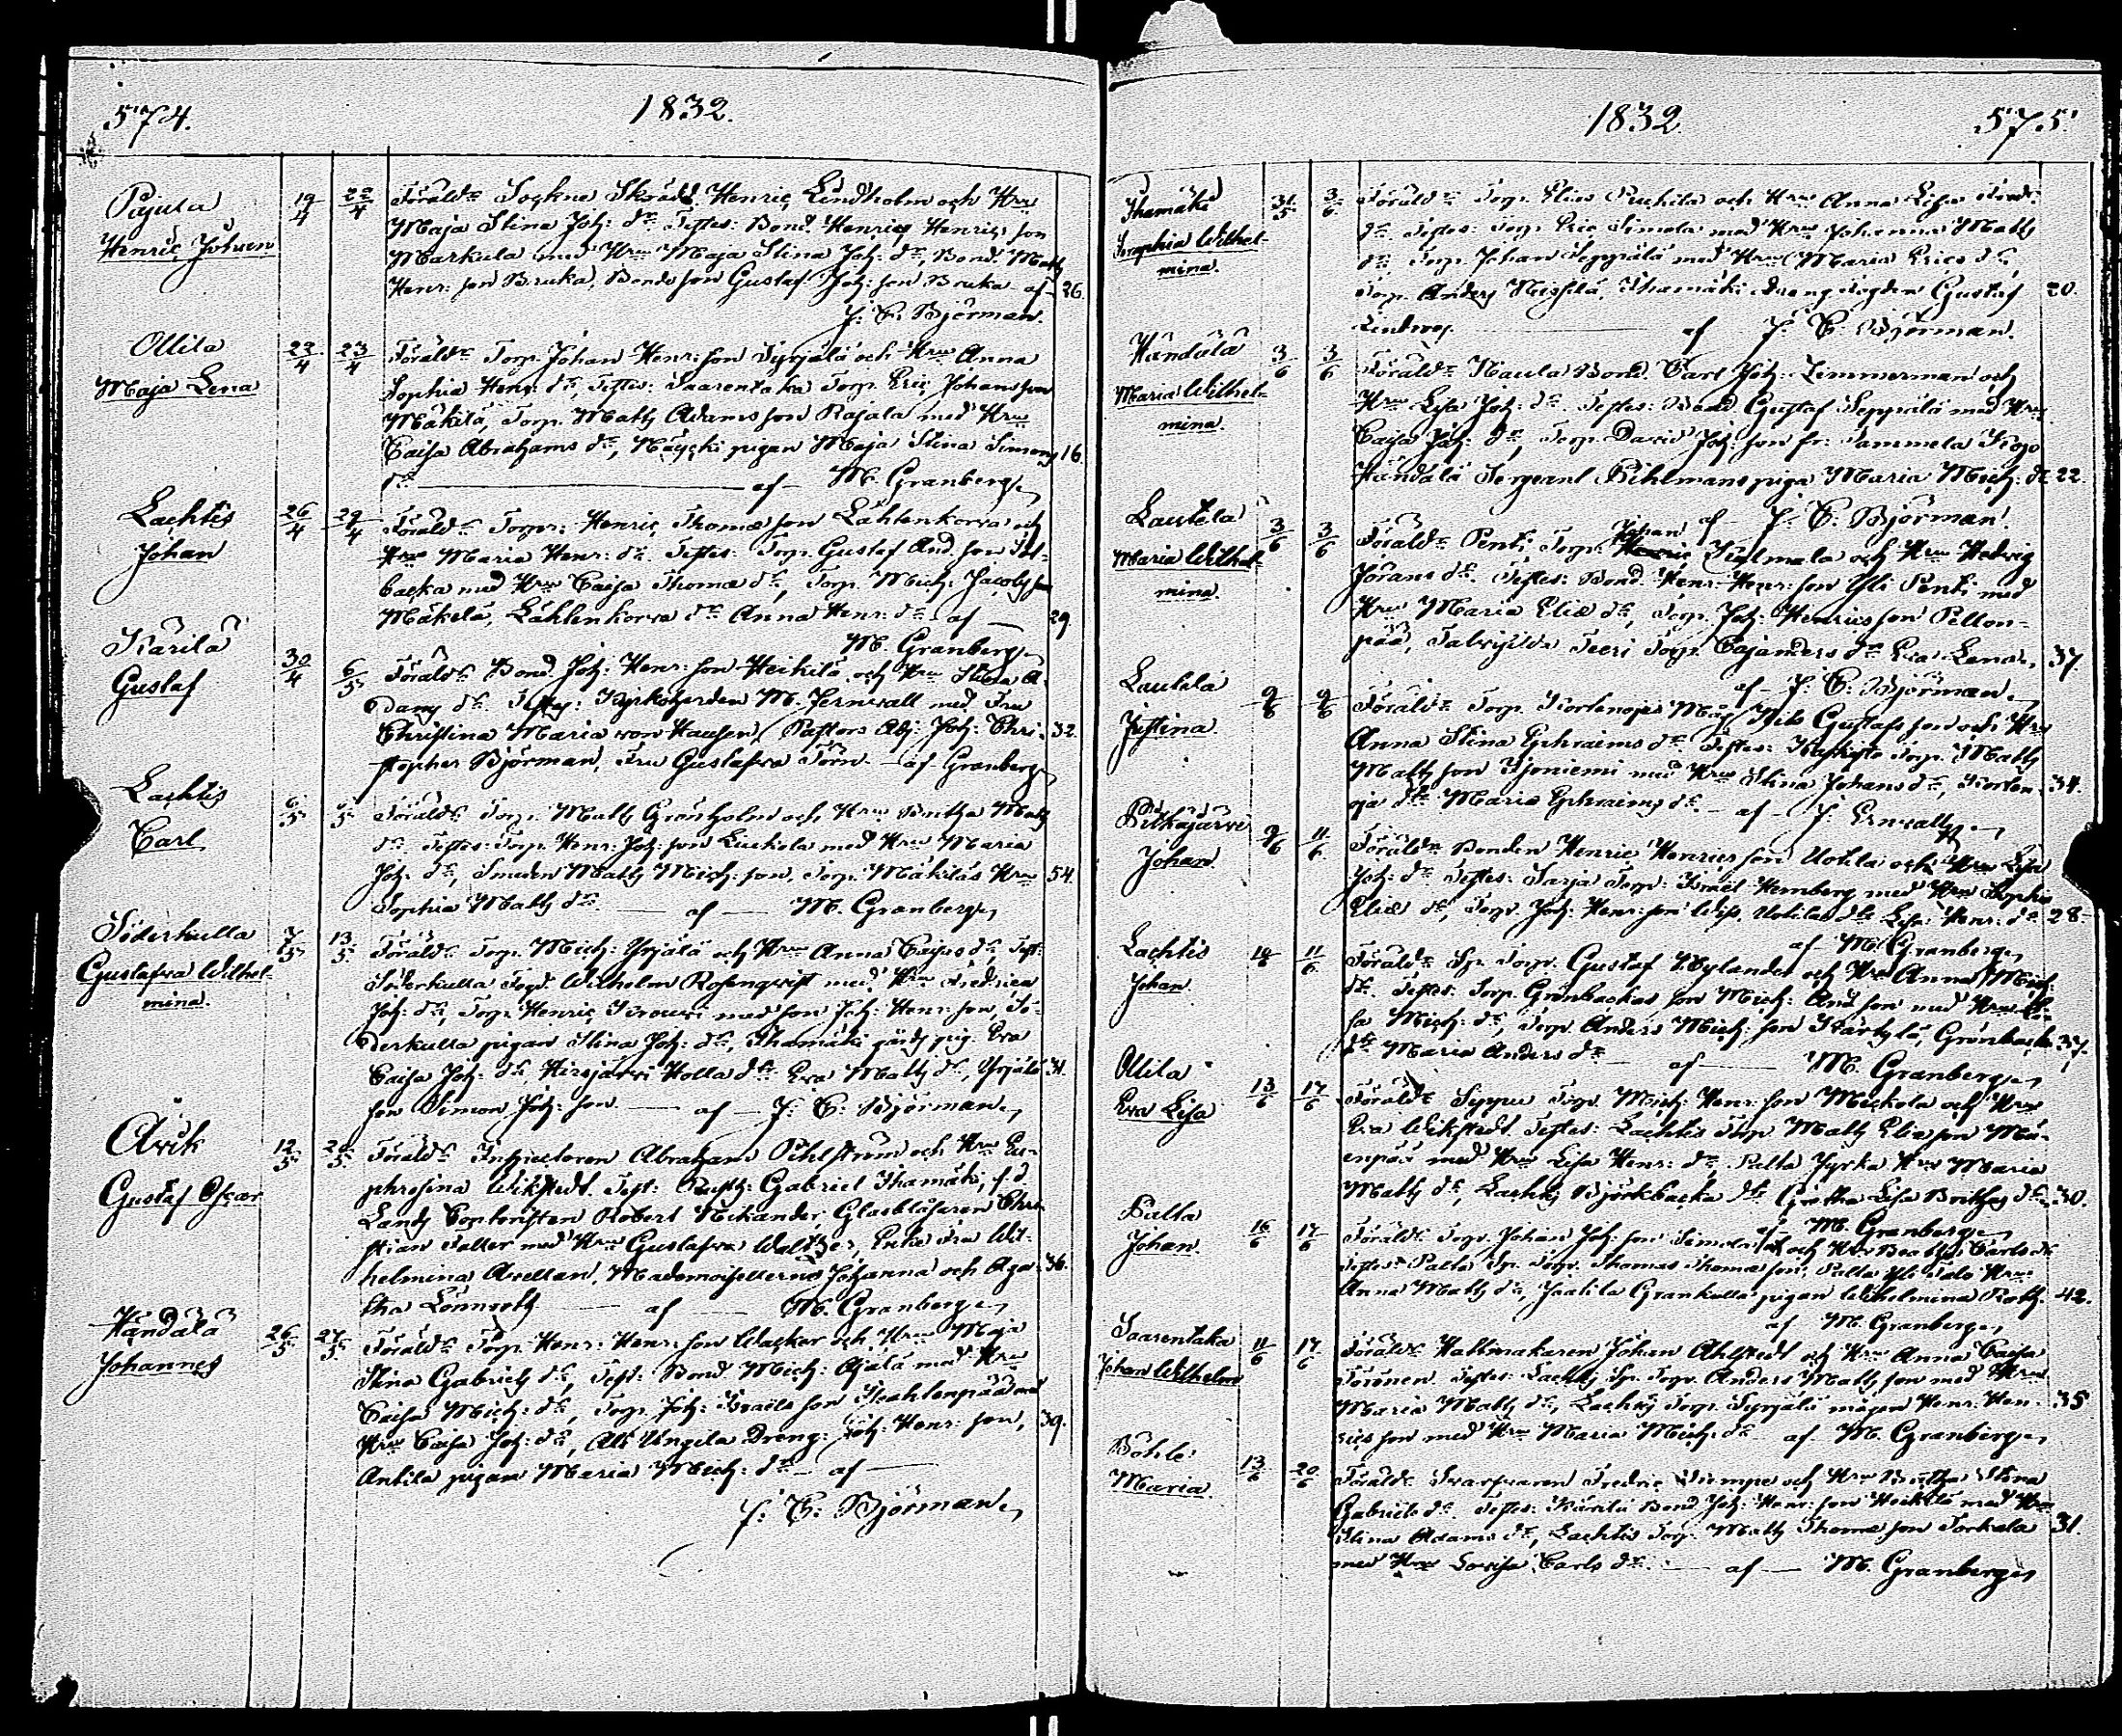 574.
1832.
Pajula
Henric Johan
19/4
22/4
Föräld: Sockne Skrädd. Henric Lindholm och Hru
Maja Stina Joh: dr. Testes: Bond. Henric Henrics son
Markula med Hru Maja Stina Joh: dr, Bond. Matts
Henr: son Bruka, Bonds son Gustaf Joh: son Bruka af
26.
J: C: Björman.
Ollila
Maja Lena
22/4
23/4
Föräld: Torp. Johan Henr: son Syrjälä och Hru Anna
Sophia Henr: dr, Testes: Saarentaka Torp. Eric Johans son
Mäkilä, Torp. Matts Adams son Rajala med Hru
Caisa Abrahams dr, pigan Maja Stina Simons
16.
dr af M. Granberg
Lachtis
Johan
26/4
29/4
Föräld: Torpr: Henric Thomæ son Lähtenkorva och
Hru Maria Henr: dr. Testes: Torp. Gustaf And. son
backa med Hru Caisa Thomæ dr, Torp. Mich: Jacobs son
Mäkelä, Lähtenkorva dr Anna Henr: dr af
29
M. Granberg
Kärilä
Gustaf
30/4
6/5
Föräld: Bond. Joh: Henr: son Heikilä och Hru Stina A-
dams dr. Testes: Kyrkoherden M. Jernvall med Fru
Christina Maria von Hausen, Pastors Adj: Joh: Chri-
32.
stopher Björman, Fru Gustafva Törn af Granberg
Lachtis
Carl
6/5
Föräld: Torp. Matts Grönholm och Hru Britha Matts
dr. Testes: Torp. Henr: Joh: son Liukola med Hru Maria
Joh: dr, Smeden Matts Mich: son, Torp. Mäkiläs Hru
54.
Sophia Matts dr. af M. Granberg
Söderkulla
Gustafva Wilhel-
mina.
7/5
13/5
Föräld: Torp. Mich: Yrjälä och Hru Anna Caisas dr, Test:
Söderkulla Fogd. Wilhelm Rosenqvist med Hru Fredrica
Joh: dr, Torp. Henric med son Joh: Henr: son, Sö-
derkulla pigan Stina Joh: dr, Thamäki gårds pig. Eva
Caisa Joh: dr, Hirsjärvi Holla dr Eva Matts dr, Yrjälä
31.
son Simon Joh: son af J: C: Björman
Åvik
Gustaf Oscar
12/5
20/5
Föräld: Inspectoren Abraham Öhlström och Hru Eu-
phrosina Wikstedt. Test: Rusth: Gabriel Thamäki, f. d.
Lands Contoristen Robert Nikander, Glasblåsaren Chri-
stian Faller med Hru Gustafva Waltzer, Enke Fru Wil-
helmina Avellan, Mademoisellerna Johanna och Aga-
36.
tha Lönnroth af M. Granberg
Händälä
Johannes
26/5
27/5
Föräld: Torp. Henr: Henr: son Wacker och Hru Maja
Stina Gabriels dr, Test: Bond. Mich: Ojala med Hru
Caisa Mich: dr, Torp. Joh: Israels son med
Hru Caisa Joh: dr, Ali Ungila Dreng: Joh: Henr: son,
39.
Antila pigan Maria Mich: dr af
J: C: Björman
1832
575.
Thamäki
Sophia Wilhel-
mina.
31/5
3/6
Föräld: Torp. Elias Puckila och Hru Anna Lisa
dr Testes: Torp. Eric Simola med Hru Johanna Matts
dr, Torp. Johan Seppälä med Hru Maria Erics dr,
Torp. Anders Thamäki Dreng Fogden Gustaf
20.
Lindroos af J: C: Björman.
Händälä
Maria Wilhel-
mina.
3/6
3/6
Föräld: Kaula Bond. Carl Joh: Zimmerman och
Hru Lisa Joh: dr. Testes: Bond Gustaf Seppälä med Hru
Caisa Joh: dr, Torp. David Joh: son fr: Tammela
Händälä Sergeant Bihlmans piga Maria Mich: dr
22.
af J: C: Björman.
Lautela
Maria Wilhel-
mina.
3/6
3/6
Föräld: Penti Torp. Johan och Hru Hedvig
Jörans dr. Testes: Bond. Henr: Henr: son Yli Penti med
Hru Maria Eliæ dr, Torp. Joh: Henrics son Pellon-
pää, Teeri Torp. Cajanders dr Eva Lena,
37.
af J: C: Björman
Lautela
Justina.
9/6
9/6
Föräld: Torp. Kortenoja Måg Nils Gustafs son och Hru
Anna Stina Ephraims dr. Testes: Torp. Matts
Matts son med Hru Stina Johans dr, Korten-
34.
oja dr Maria Ephraims dr af J: Ernvall
Pitkäjärvi
Johan
9/6
11/6
Föräld: Bonden Henric Henrics son Uotila och Hru Lisa
Joh: dr Testes: Sarja Torp: Israel Hemberg med Hru Sophia
Eliæ dr, Torp. Joh: Henr: son Uotilas dr Lisa Henr: dr
28
af M. Granberg
Lachtis
Johan
10/6
11/6
Föräld: Sp: Torp. Gustaf Wylander och Hru Anna Mich:
dr. Testes: Torp. Grönbackas son Mich: And: son med Hru
sa Mich: dr, Torp. Anders Mich: son Kärkylä, Grönbacka
37.
dr Maria Anders dr af M. Granberg
Ollila
Eva Lisa
13/6
17/6
Föräld: Torp. Mich: Henr: son Mickola och Hru
Eva Wikstedt. Testes: Lachtis Torp. Matts Eliæ son Mä-
enpää med Hru Lisa Henr: dr, Palta Jyrka Hru Maria
Matts dr, Lachtis Björkbacka dr Lisa Brithas dr
30.
af M. Granberg
Palta
Johan
16/6
17/6
Föräld: Torp. Johan Joh: son Simola och Hru Beata Carls dr
Testes: Palta Sp: Torp. Thomas Thomæ son, Palta Yli Talo Hru
Anna Matts dr, Jaatila Grankulla pigan Wilhelmina Roth.
42.
af M. Granberg
Saarentaka
Johan Wilhelm
11/6
17/6
Föräld: Hattmakaren Johan Ahlstedt och Hru Anna Caisa
Törönen. Testes: Lachtis Sp: Torp. Anders Matts son med Hru
Maria Matts dr, Lachtis Torp. Syrjälä mågen Henr: Hen-
35
rics son med Hru Maria Mich: dr af M. Granberg
Böhle
Maria
13/6
20/6
Föräld: Svarfvaren Fredric och Hru Britha Stina
Gabriels dr. Testes: Kärilä Bond. Joh: Henr: son Heikilä med Hru
Stina Adams dr, Lachtis Torp. Matts Thomæ son Torkala
31.
med Hru Lovisa Carls dr. af M. Granberg